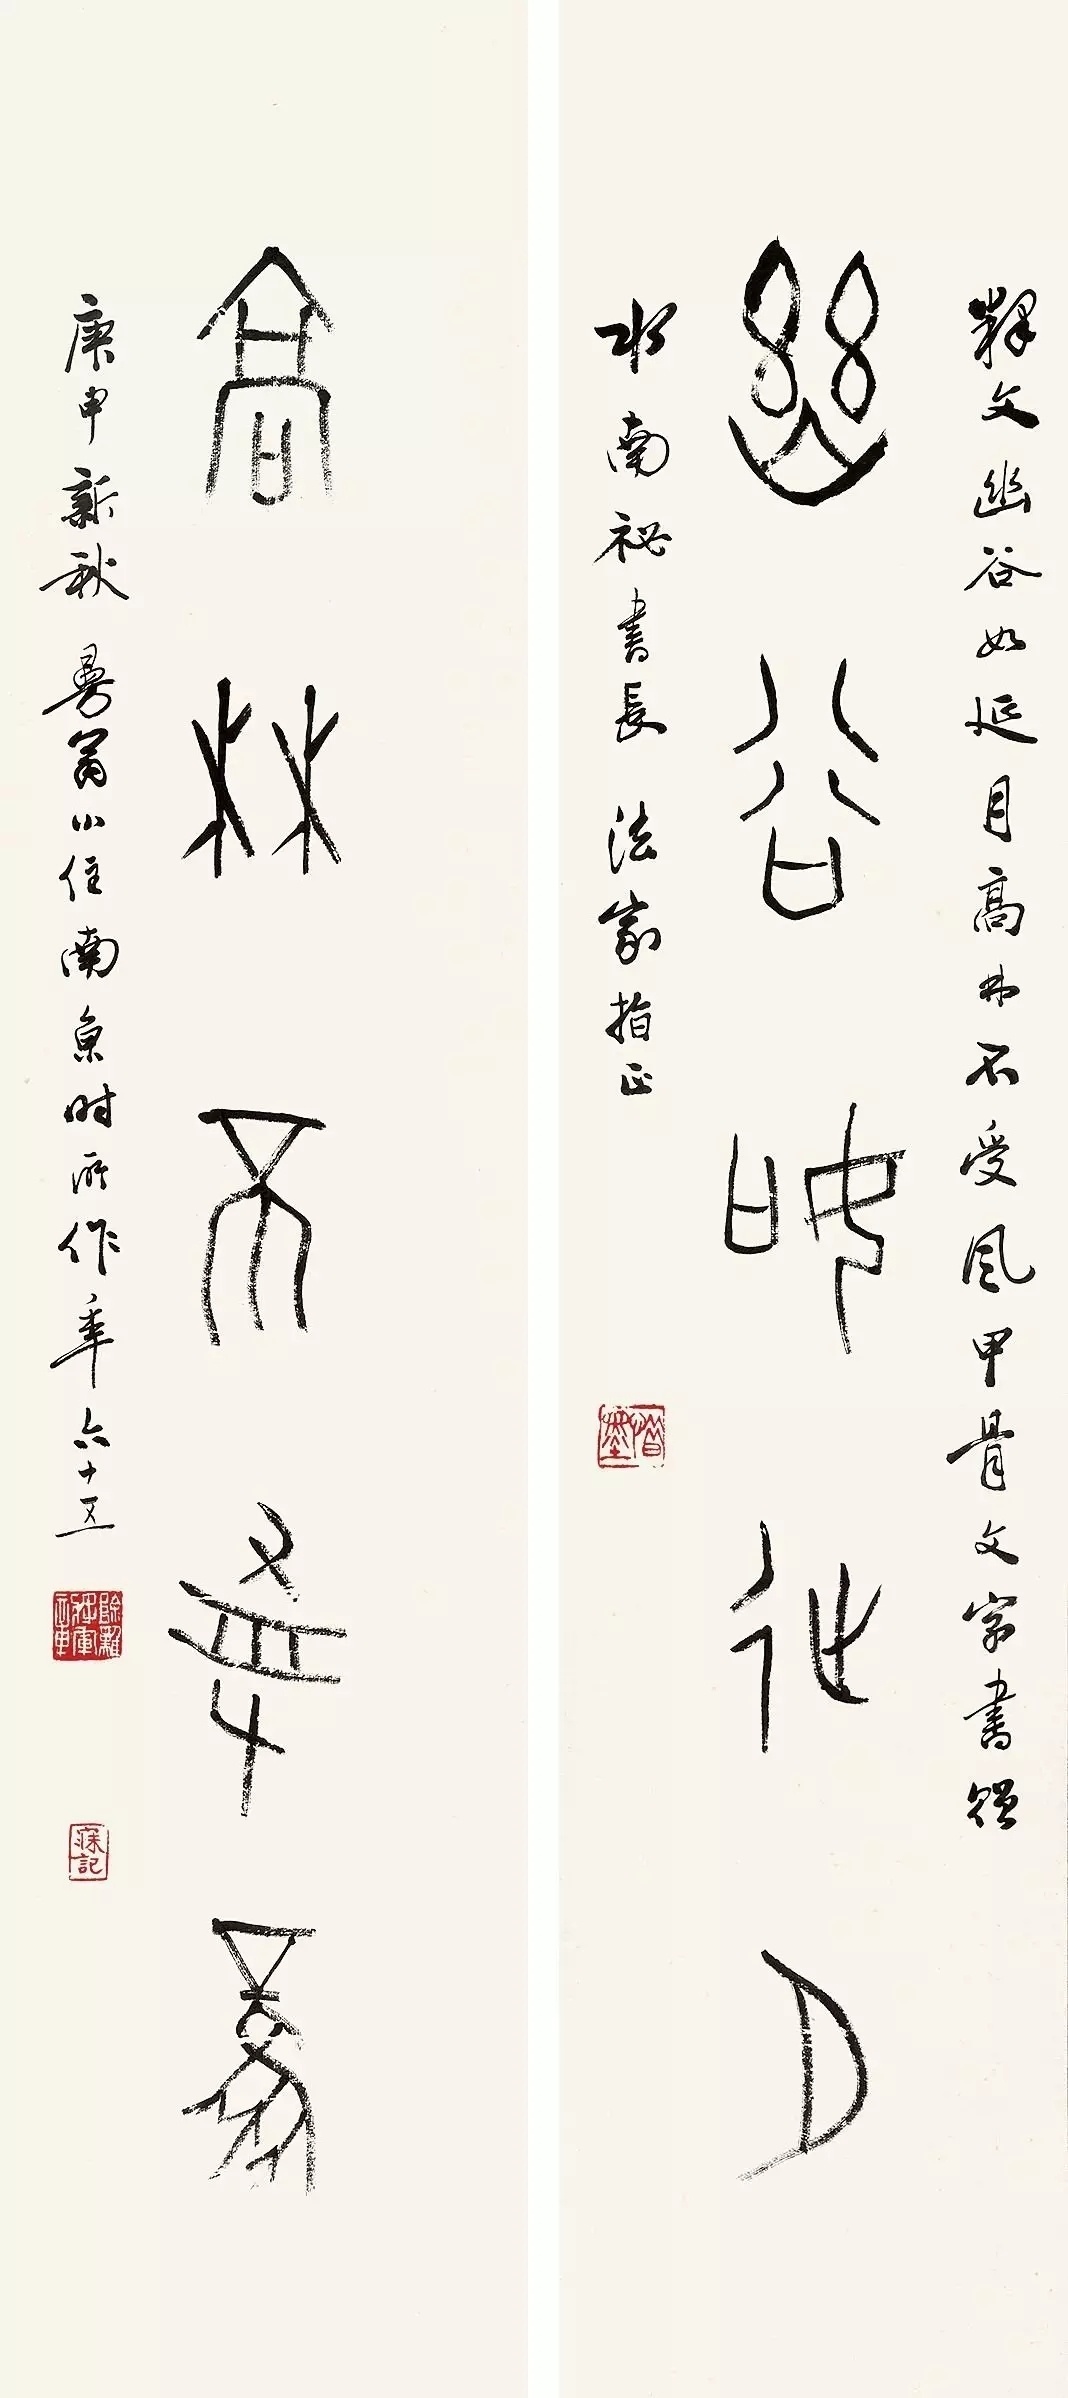 釋文幽谷如延月高林不受風甲骨文字書贈
幽谷如延月
水南祕書長 法家指正
高林不受風
庚申新秋 曼翁小住南京时所作年六十五